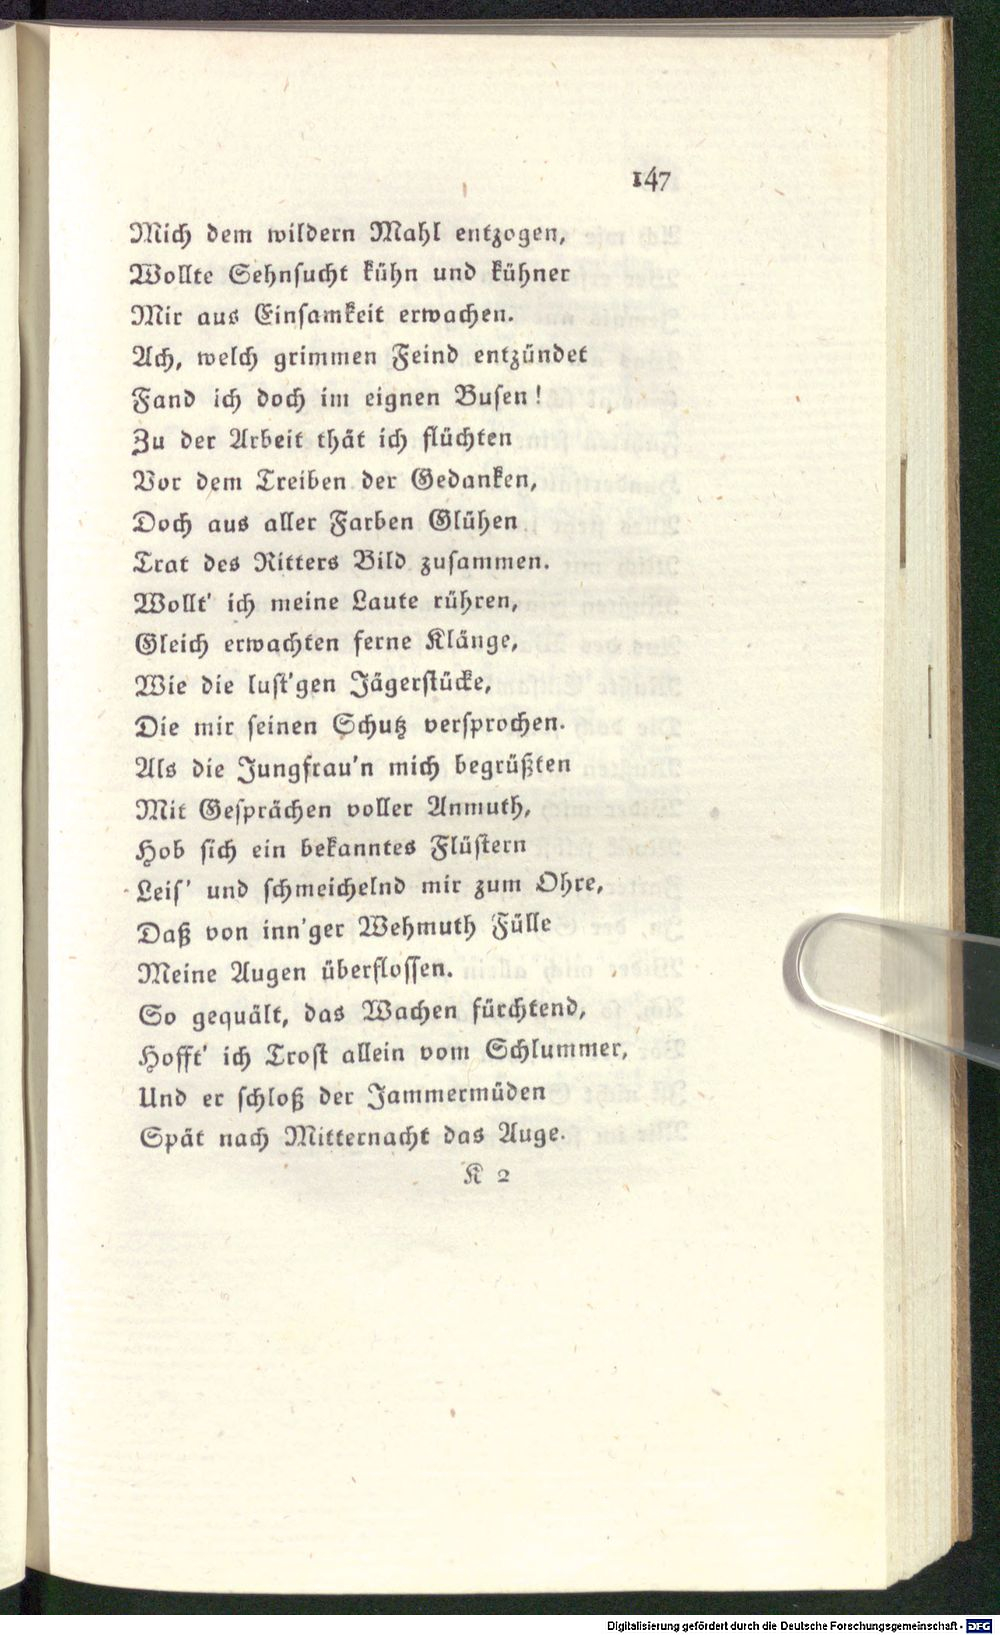 147
Mich dem wildern Mahl entzogen,
Wollte Sehnsucht kühn und kühner
Mir aus Einsamkeit erwachen.
Ach, welch grimmen Feind entzündet
Fand ich doch im eignen Busen!
Zu der Arbeit thät ich flüchten
Vor dem Treiben der Gedanken,
Doch aus aller Farben Glühen
Trat des Ritters Bild zusammen.
Wollt' ich meine Laute rühren,
Gleich erwachten ferne Klänge,
Wie die lust'gen Jägerstücke,
Die mir seinen Schutz versprochen.
Als die Jungfrau'n mich begrüßten
Mit Gesprächen voller Anmuth,
Hob sich ein bekanntes Flüstern
Leis' und schmeichelnd mir zum Ohre,
Daß von inn'ger Wehmuth Fülle
Meine Augen überflossen.
So gequält, das Wachen fürchtend,
Hofft' ich Trost allein vom Schlummer,
Und er schloß der Jammermüden
Spät nach Mitternacht das Auge.
K 2
Digitalisierung gefördert durch die Deutsche Forschungsgemeinschaft - DFG